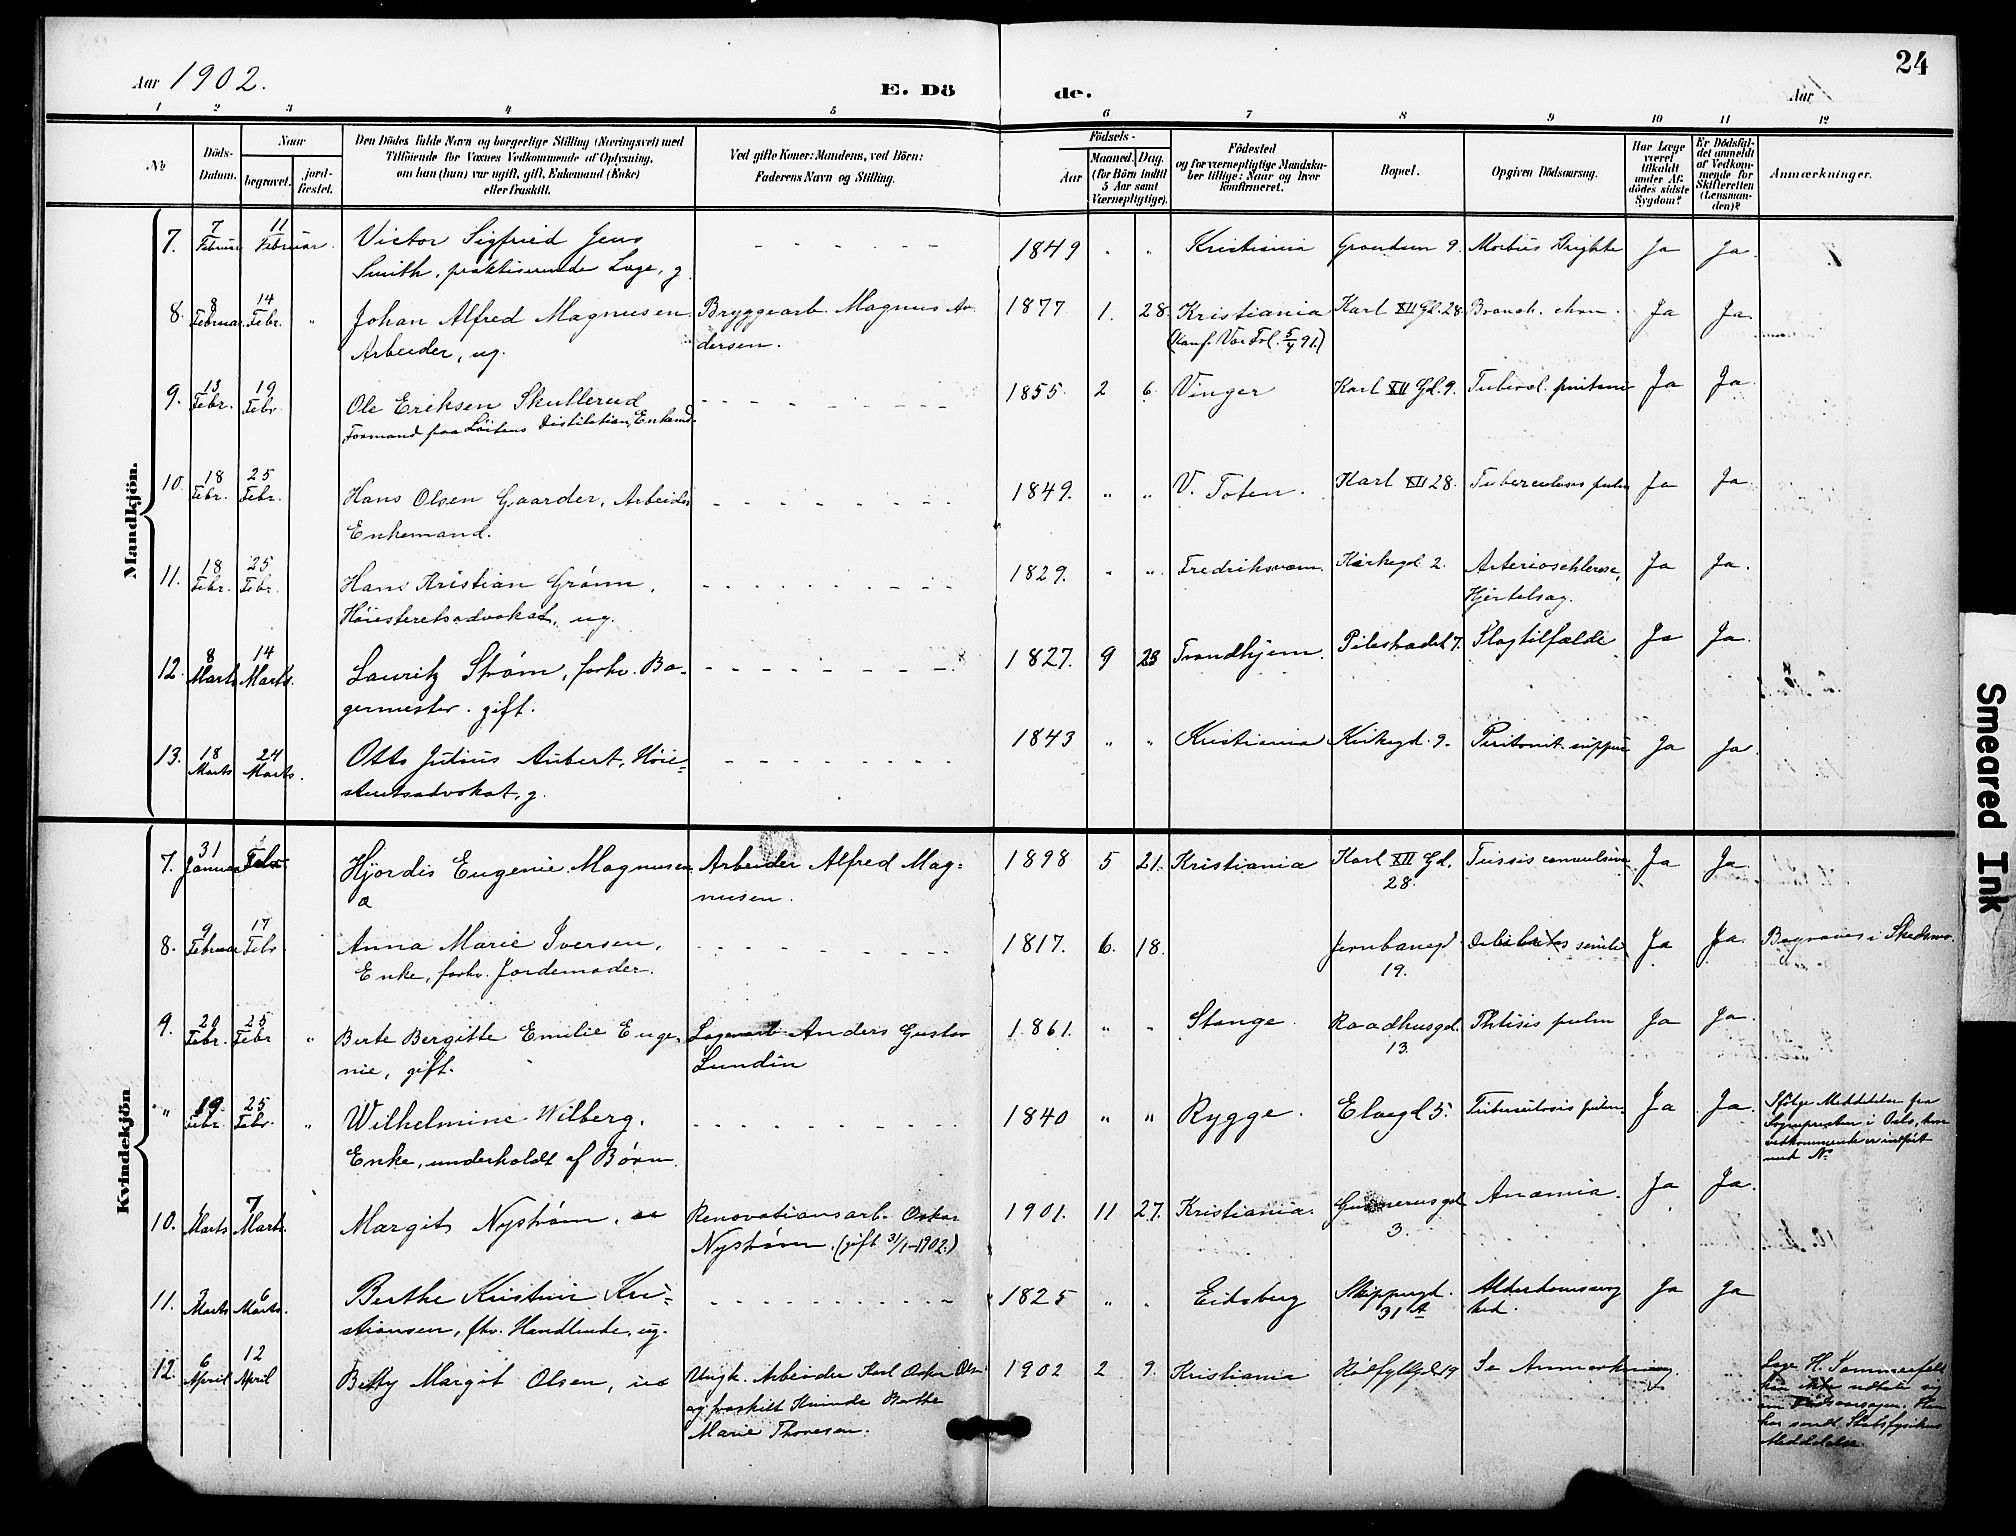 24
Aar 1902.
E. Dö de.
Aar
1 2 3 4 5 6 7 8 9 10 11 12
No
Döds-
Datum.
Naar
begravet.
jord-
fæstet.
Den Dödes fulde Navn og borgerlige Stilling (Næringsvei) med
Tilföiende for Voxnes Vedkommende af Oplysning,
om han (hun) var ugift, gift, Enkemand (Enke)
eller fraskilt.
Ved gifte Koner: Mandens, ved Börn:
Faderens Navn og Stilling.
Födsels-
Aar
Maaned. Dag.
(for Börn indtil
5 Aar samt
Værnepligtige).
Födested
og for værnepligtige Mandska-
ber tillige: Naar og hvor
konfirmeret.
Bopæl.
Opgiven Dödsaarsag.
Har Læge
været
tilkaldt
under Af-
dödes sidste
Sygdom?
Er Dödsfal-
det anmeldt
af Vedkom-
mende for
Skifteretten
(Lensman-
den)?
Anmærkninger.
Mandkjön.
7. 7 Februar 11 Februar. Victor Sigfried Jens
Smith, praktiserende Læge, g.
1849 " " Kristiania Grændsen 9. Morbus Brighte Ja Ja.
8. 8 Februar 14 Febr. " Johan Alfred Magnusen
Arbeider, ug.
Bryggearb. Magnus An-
dersen.
1877 1. 28. Kristiania
(Konf. Vor Frl. 5/4 91.)
Karl XII Gd. 28 Bronch. chron. Ja Ja.
9. 13 Febr. 19 Febr. Ole Eriksen Skullerud
Formand paa Løitens Distilation, Enkemd.
1855. 2 6. Vinger Karl XII Gd. 9. Ja Ja.
10. 18 Febr. 25 Febr. Hans Olsen Gaarder, Arbeider
Enkemand.
1849. " " V. Toten. Karl XII 28. Tuberculosis pulm Ja Ja.
11. 18 Febr. 25 Febr. Hans Kristian Grønn,
Høiesteretsadvokat, ug.
1829. " " Fredriksværn. Kirkegd 2. Arteriosclerose,
Hjertelsag.
Ja Ja.
12. 8 Marts 14 Marts. Lauritz Strøm, forhv. Ba-
germester. gift.
1827. 9 23 Trondhjem. Pilestrædet 7. Slagtilfælde Ja Ja.
13. 18 Marts 24 Marts. Otto Julius Aubert, Høie-
steretsadvokat, g.
1843 " " Kristiania Kirkegd. 9. Peritonit. suppur Ja Ja.
Kvindekjön
7. 31 Januar Febr Hjørdis Eugenie Magnusen
Arbeider Alfred Mag-
nusen.
1898 5 21. Kristiania Karl XII Gd.
28.
Tussis convulsiva Ja Ja.
8. 9 Februar 17 Febr. Anna Marie Iversen,
Enke, forhv. Jordemoder.
1817. 6. 18. Jernbanegd
19.
Debilitas senilis Ja Ja. Begraves i Skedsmo.
9. 20 Febr. 25 Febr " Berte Bergitte Emilie Euge-
nie, gift.
Lagerarb Anders Gustav
Lundin
1861. " " Stange. Raadhusgd.
13.
Phtisis pulm Ja Ja.
" 19 Febr. 25 Febr. " Wilhelmine Wilberg.
Enke, underholdt af Børn.
1840 " " Rygge. Elvegd 5. Tuberculosis pulm. Ja Ja.
Ifølge Meddelelse fra
Sognepresten i Oslo, hvor
vedkommende er indført
med No
10. Marts 7 Marts. Margit Nystrøm,
Renovationsarb. Oskar
Nystrøm. (gift 31/1-1902.)
1901. 11 27. Kristiania. Gunnerusgd
3.
Anæmia. Ja Ja.
11. 3 Marts 6 Marts. Berthe Kristine Kri-
stiansen, fhv. Handlende, ug.
1825 " " Eidsberg Skippergd.
31 A
Alderdomssvag
hed.
Ja Ja
12. 6 April 12 April Betty Margit Olsen,
Ungk. Arbeider Karl Oskar Olsen
og fraskilt Kvinde Berthe
Marie Thoresen.
1902 2 9. Kristiania Se Anmærkning.
Læge H. Sommerfeldt
kan ikke udtale sig
om Dødsaarsagen. Han
har sendt Stadsfysikus
Meddelelse.
Smeared Ink